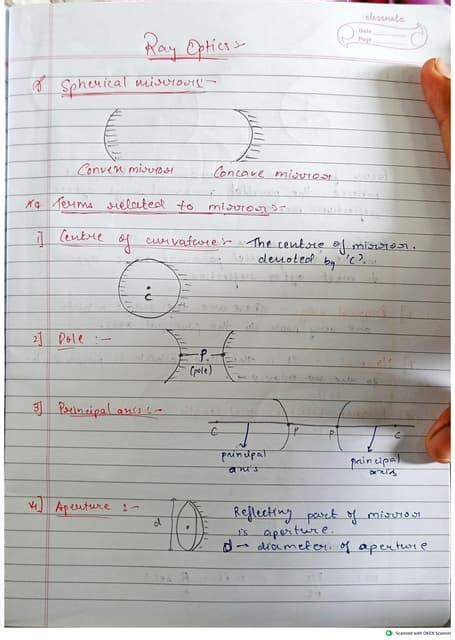 classmate
Date
Page
Ray Optics :-
Spherical mirrors :-
Convex mirror Concave mirror
Terms related to mirrors :-
1] Centre of curvature :- The centre of mirror.
denoted by 'C'.
C
2] Pole :-
P
(pole)
3] Principal axis :-
C P P C
principal axis principal axis
4] Aperture :- Reflecting part of mirror
is aperture.
d
d → diameter of aperture
Scanned with OKEN Scanner